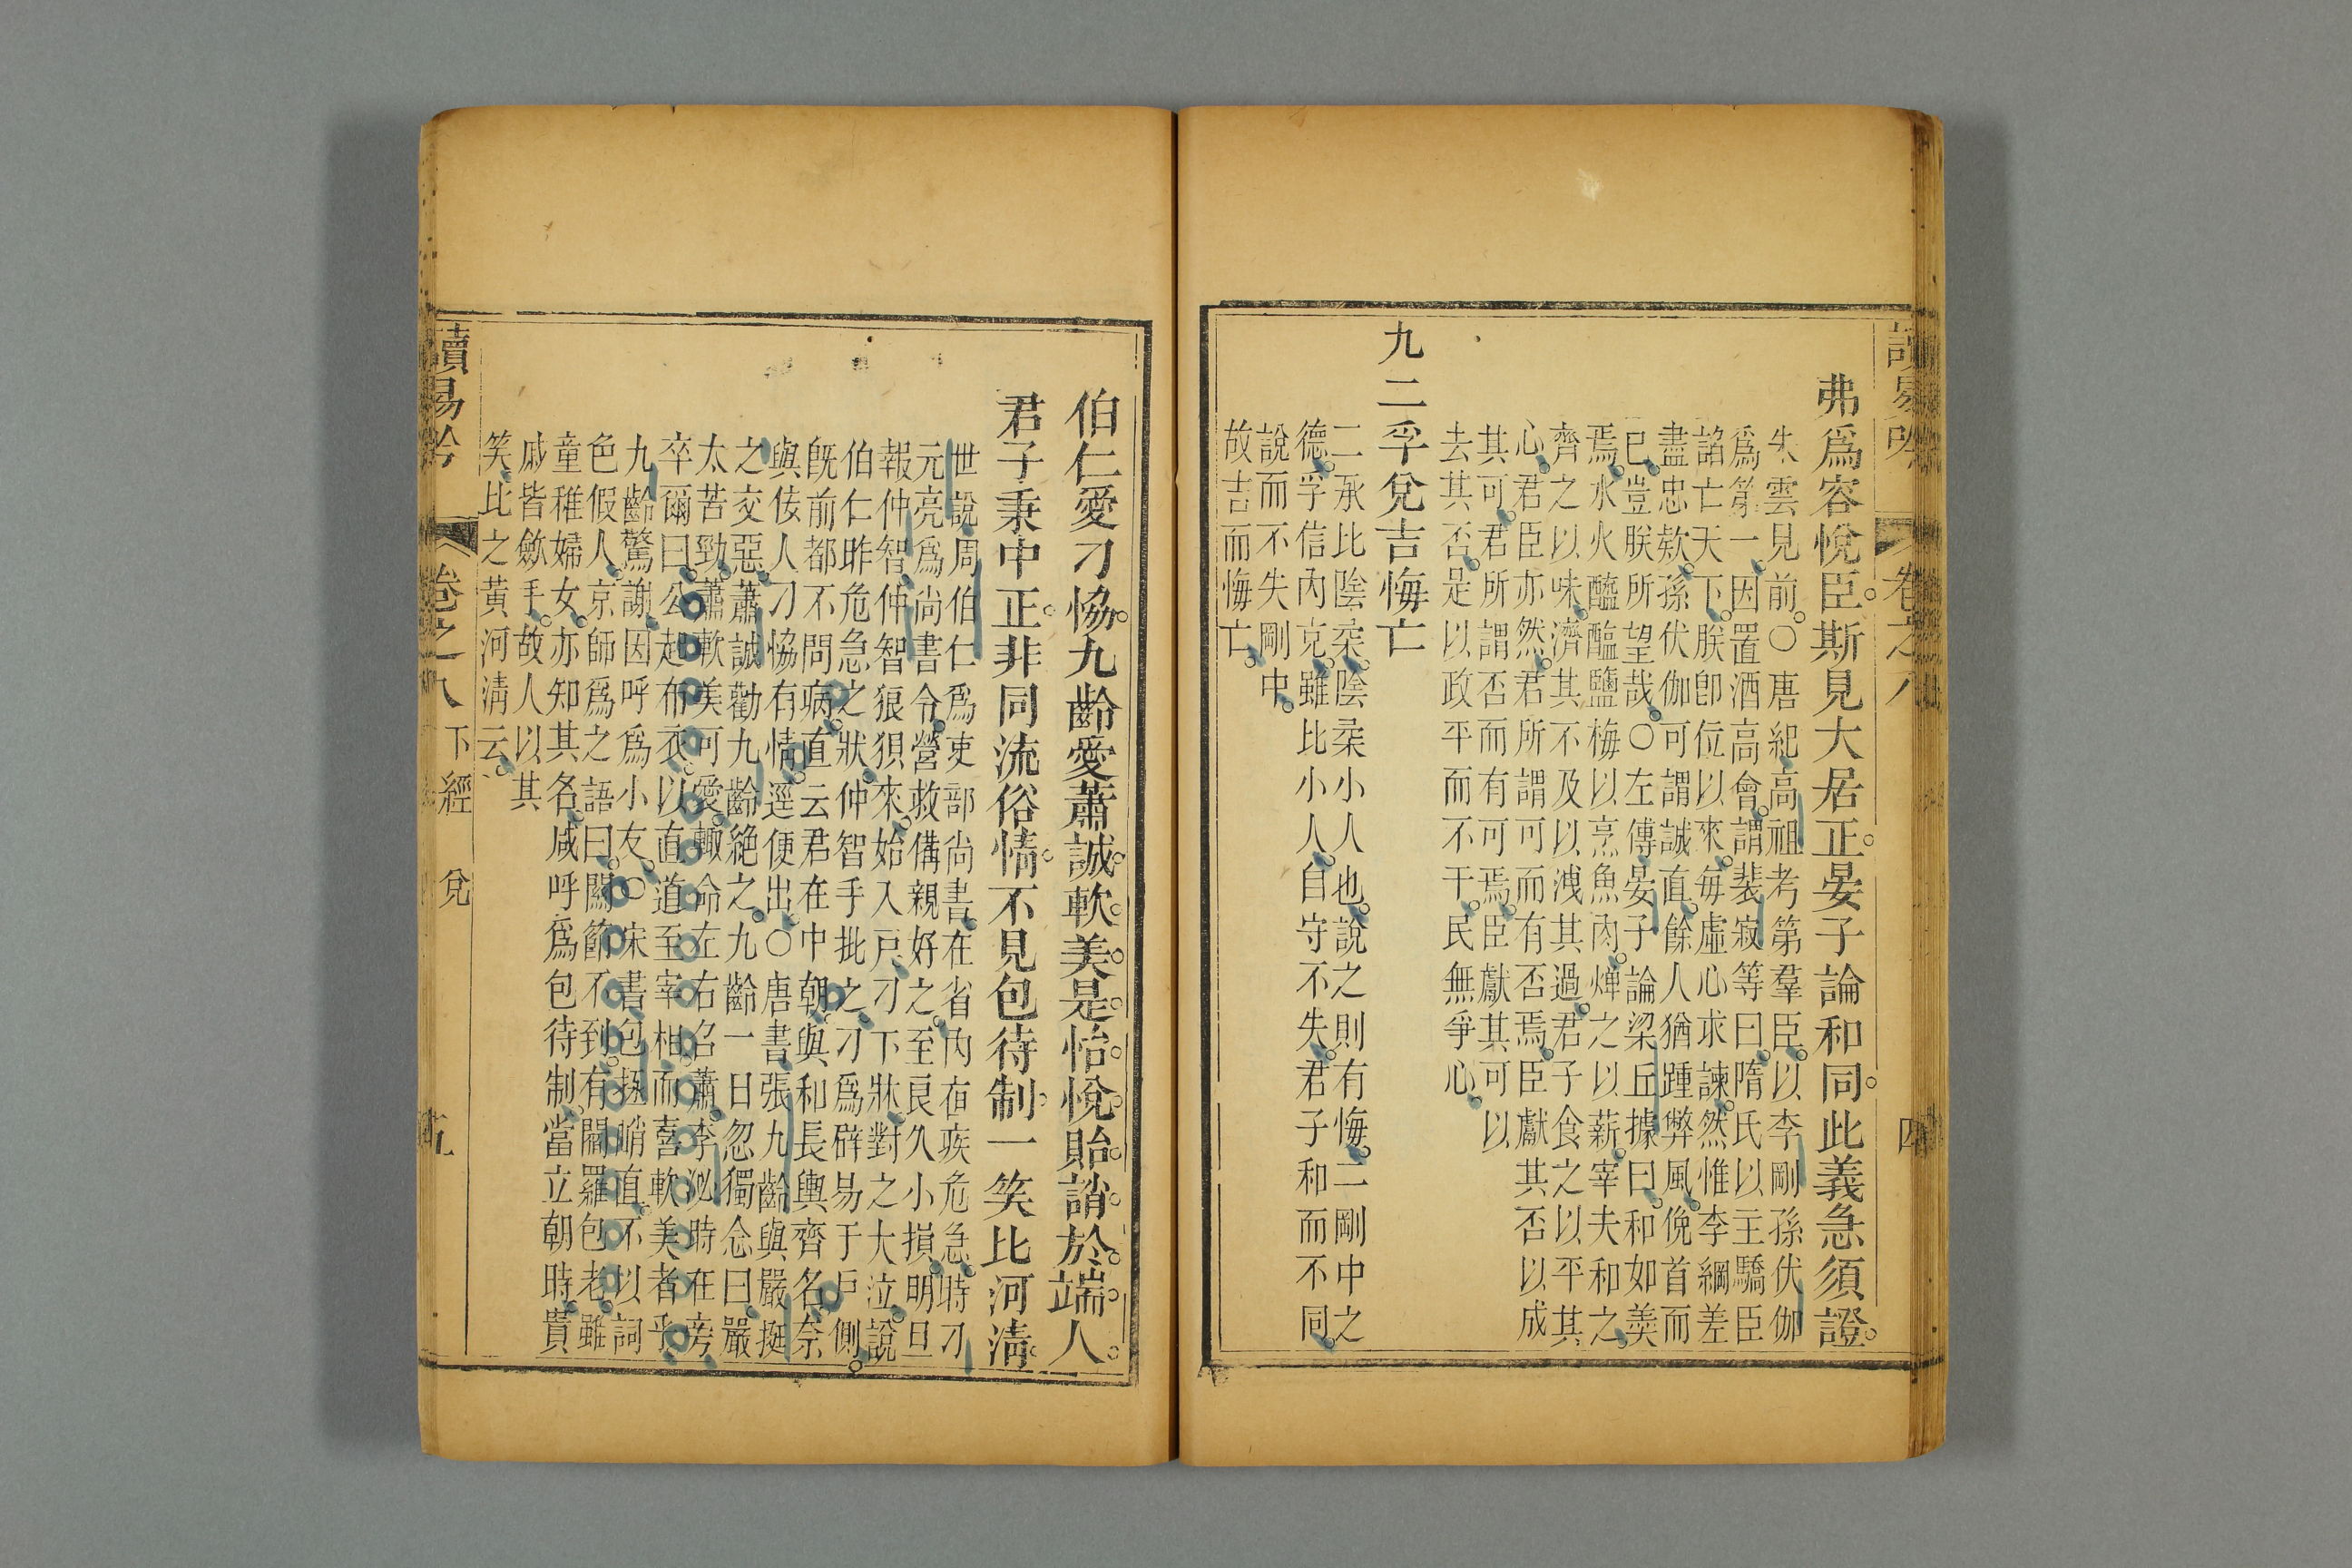 卷之八
四
弗爲容悅臣斯見大居正晏子論和同此義急須證
朱雲見前○唐紀高祖考第羣臣以李剛孫伏伽
爲第一因置酒高會謂裴寂等曰隋氏以主驕臣
諂亡天下朕卽位以來每虛心求諫然惟李綱差
盡忠欵孫伏伽可謂誠直餘人猶踵弊風俛首而
已豈朕所望哉○左傳晏子論梁丘據曰和如羮
焉水火醯醢鹽梅以烹魚肉燀之以薪宰夫和之
齊之以味濟其不及以洩其過君子食之以平其
心君臣亦然君所謂可而有否焉臣獻其否以成
其可君所謂否而有可焉臣獻其可以
去其否是以政平而不干民無爭心
九二孚兌吉悔亡
二承比陰柔陰柔小人也說之則有悔二剛中之
德孚信內克雖比小人自守不失君子和而不同
說而不失剛中
故吉而悔亡
伯仁愛刁恊九齡愛蕭誠軟美是怡悅貽誚於端人
君子秉中正非同流俗情不見包待制一笑比河淸
世說周伯仁爲吏部尚書在省內夜疾危急時刁
元亮爲尚書令營救備親好之至良久小損明旦
報仲智仲智狼狽來始入戶刁下牀對之大泣說
伯仁昨危急之狀仲智手批之刁爲辟易于戶側
旣前都不問病直云君在中朝與和長輿齊名奈
與佞人刁恊有情逕便出○唐書張九齡與嚴挺
之交惡蕭誠勸九齡絕之九齡一日忽獨念曰嚴
太苦勁蕭軟美可愛輙命左右召蕭李泌時在旁
卒爾曰公起布衣以直道至宰相而喜軟美者乎
九齡驚謝因呼爲小友○宋書包拯峭直不以詞
色假人京師爲之語曰關節不到有閻羅包老雖
童稚婦女亦知其名咸呼爲包待制當立朝時貴
戚皆斂手故人以其
笑比之黃河淸云
讀易吟
卷之八
下經
兌
五